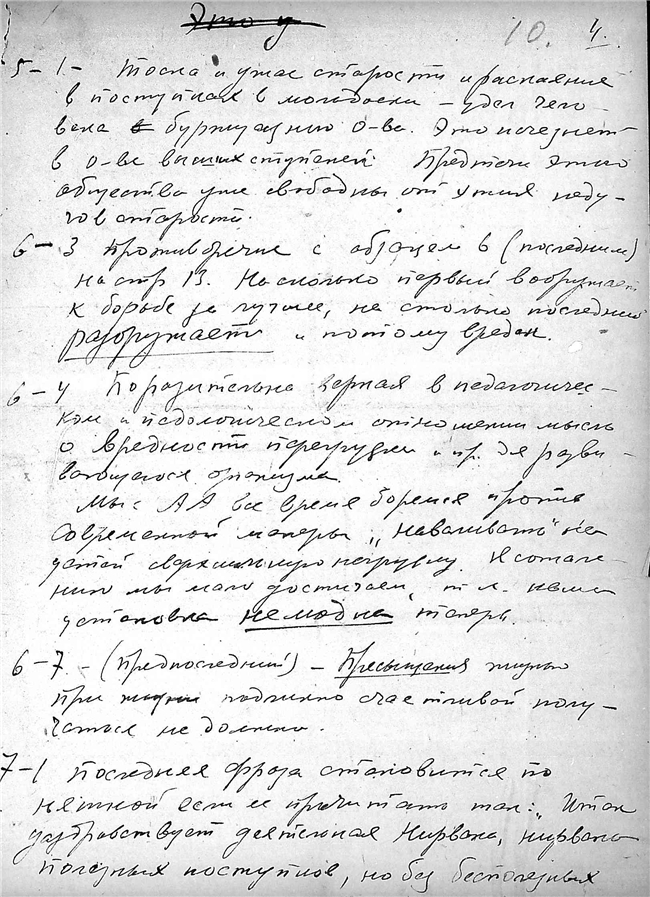 Это у
10. 4.
5 – 1 – Тоска и ужас старости и раскаяние
в поступках в молодости – удел чело-
века в буржуазном о-ве. Это исчезнет
в о-ве высших ступеней. Предтечи этого
общества уже свободны от этих неду-
гов старости.
6 – 3 Противоречие с абзацем 6 (последним)
на стр 13. Насколько первый вооружает
к борьбе за лучшее, на столько последний
разоружает и потому вреден.
6 – 4 Поразительно верная в педагогичес-
ком и педологическом отношении мысль
о вредности перегрузки и пр. для разви-
вающегося организма.
Мы с АА все время боремся против
современной манеры „наваливать" на
детей сверхсильную нагрузку. К сожале-
нию мы мало достигаем, т. к. наша
установка немодна теперь.
6 – 7 – (предпоследний) – Пресыщения жизнью
при жизни подлинно счастливой полу-
чаться не должно.
7 – 1 Последняя фраза становится по
нятной если ее прочитать так: „Итак
да здравствует деятельная Нирвана, нирвана
полезных поступков, но без бесполезных